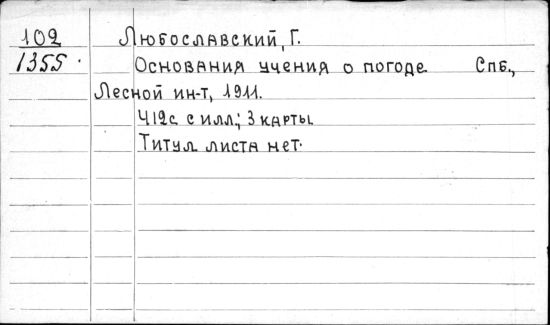 102 Любославский, Г.
1355. Основания учения о погоде Спб.,
Лесной ин-т, 1911.
412с. с илл.; 3 карты
Титул. листа нет.